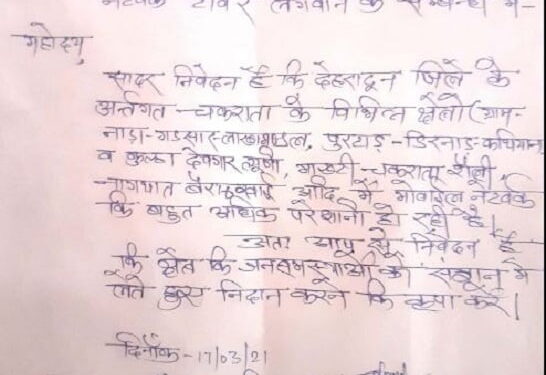 नेटवर्क टावर लगवाने के सम्बन्ध में-
महोदय,
सादर निवेदन है कि देहरादून जिले के
अर्तगत चकराता के विभिन्न क्षेत्रो (ग्राम-
नाडा-गडसार-लाखामण्डल, पुरटाड-डिरनाड-कचियाना,
व कुल्हा देवघार त्यूणी, चकराता शैली,
नागथात बैराटखाई आदि में मोबाइल नेटवर्क
कि बहुत अधिक परेशानी हो रही है।
अतः आप से निवेदन है
कि क्षेत्र कि जनसमस्याओं को संज्ञान में
लेते हुए निदान करने कि कृपा करें।
दिनाँक-17/03/21